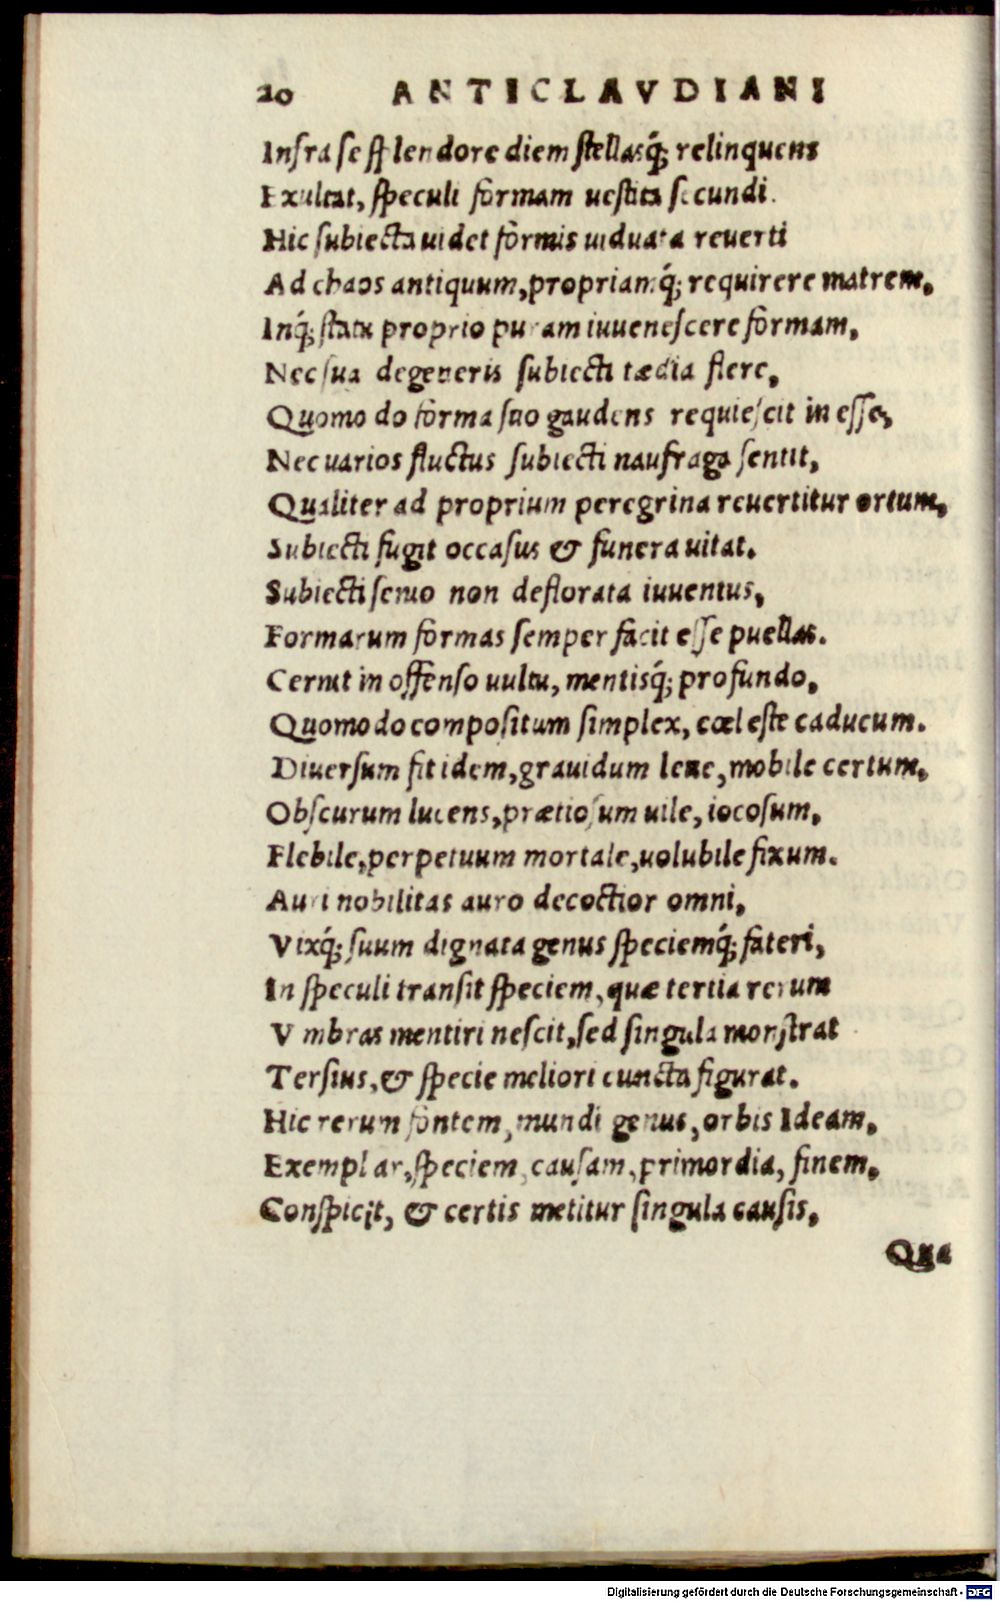 20 ANTICLAVDIANI
Infra se splendore diem stellasq́; relinquens
Exultat, speculi formam uestita secundi.
Hic subiecta uidet formis uiduata reuerti
Ad chaos antiquum, propriamq́; requirere matrem,
Inq́; statu proprio puram iuuenescere formam,
Nec sua degeneris subiecti tædia flere,
Quomodo forma suo gaudens requiescit in esse,
Nec uarios fluctus subiecti naufraga sentit,
Qualiter ad proprium peregrina reuertitur ortum,
Subiecti fugit occasus & funera uitat.
Subiecti senio non deflorata iuuentus,
Formarum formas semper facit esse puellas.
Cernit in offenso uultu, mentisq́; profundo,
Quomodo compositum simplex, cœleste caducum.
Diuersum fit idem, grauidum leue, mobile certum,
Obscurum lucens, prætiosum uile, iocosum,
Flebile, perpetuum mortale, uolubile fixum.
Auri nobilitas auro decoctior omni,
Vixq́; suum dignata genus speciemq́; fateri,
In speculi transit speciem, quæ tertia rerum
Vmbras mentiri nescit, sed singula monstrat
Tersius, & specie meliori cuncta figurat.
Hic rerum fontem, mundi genus, orbis Ideam,
Exemplar, speciem, causam, primordia, finem,
Conspicit, & certis metitur singula causis,
Qua
Digitalisierung gefördert durch die Deutsche Forschungsgemeinschaft - DFG